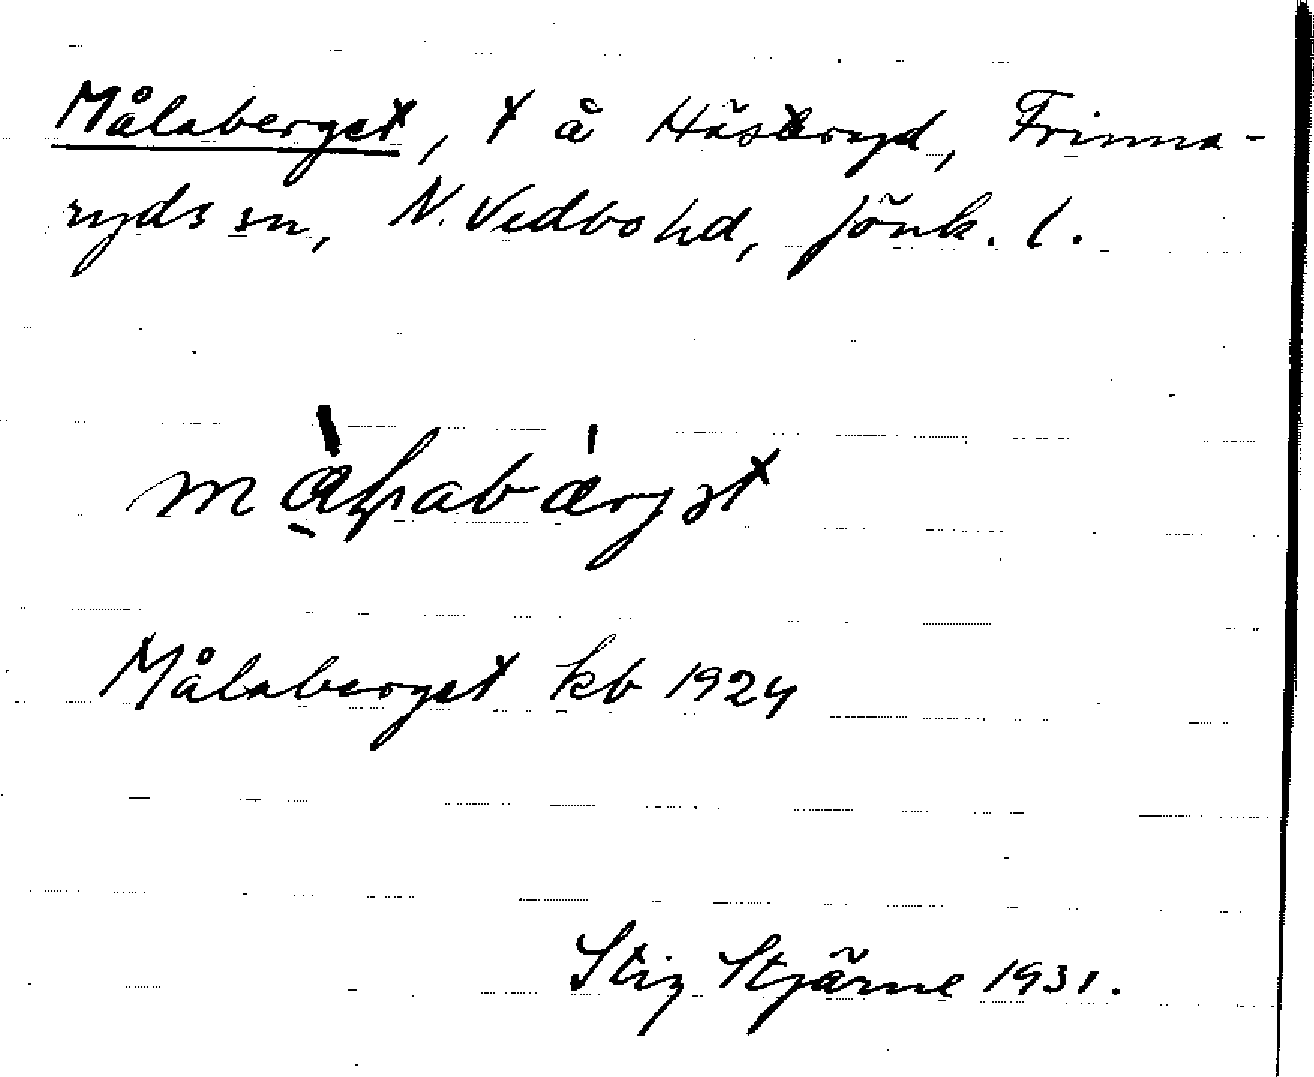 Målaberget, t å Hästeryd, Frinna-
ryds sn, N. Vedbo hd, Jönk. l.
Målaberget kb 1924
Stig Stjärne 1931.